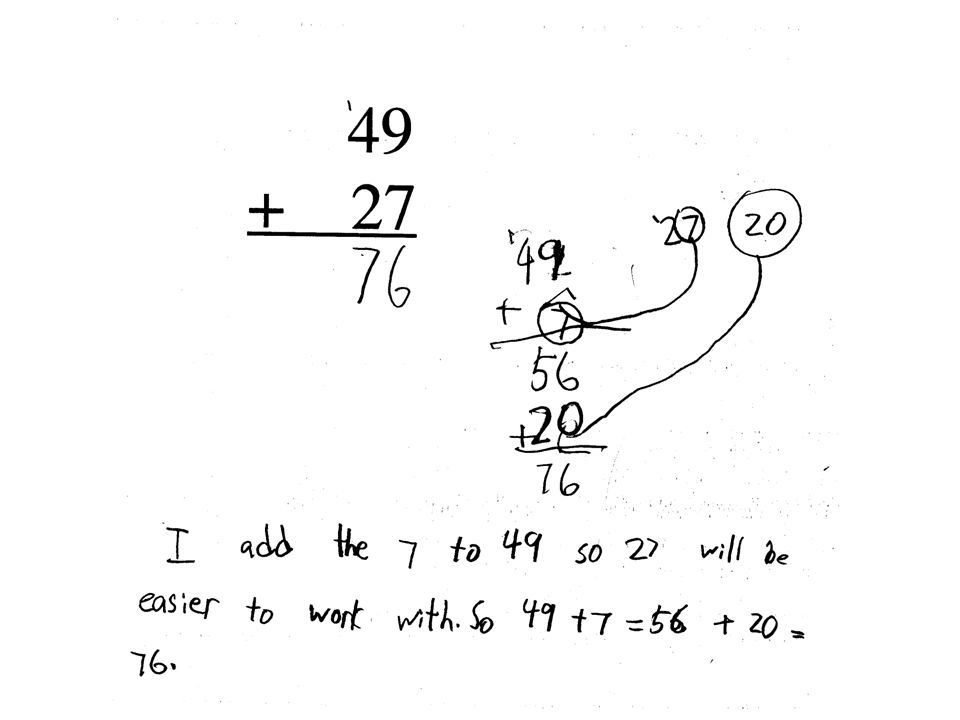 '49
+ 27
76
'27 20
'49
+ 7
56
+20
76
I add the 7 to 49 so 27 will be
easier to work with. So 49 + 7 = 56 + 20 =
76.